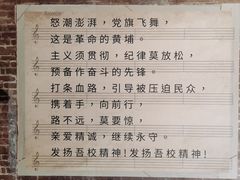 怒潮澎湃，党旗飞舞，
这是革命的黄埔。
主义须贯彻，纪律莫放松，
预备作奋斗的先锋。
打条血路，引导被压迫民众，
携着手，向前行，
路不远，莫要惊，
亲爱精诚，继续永守。
发扬吾校精神！发扬吾校精神！